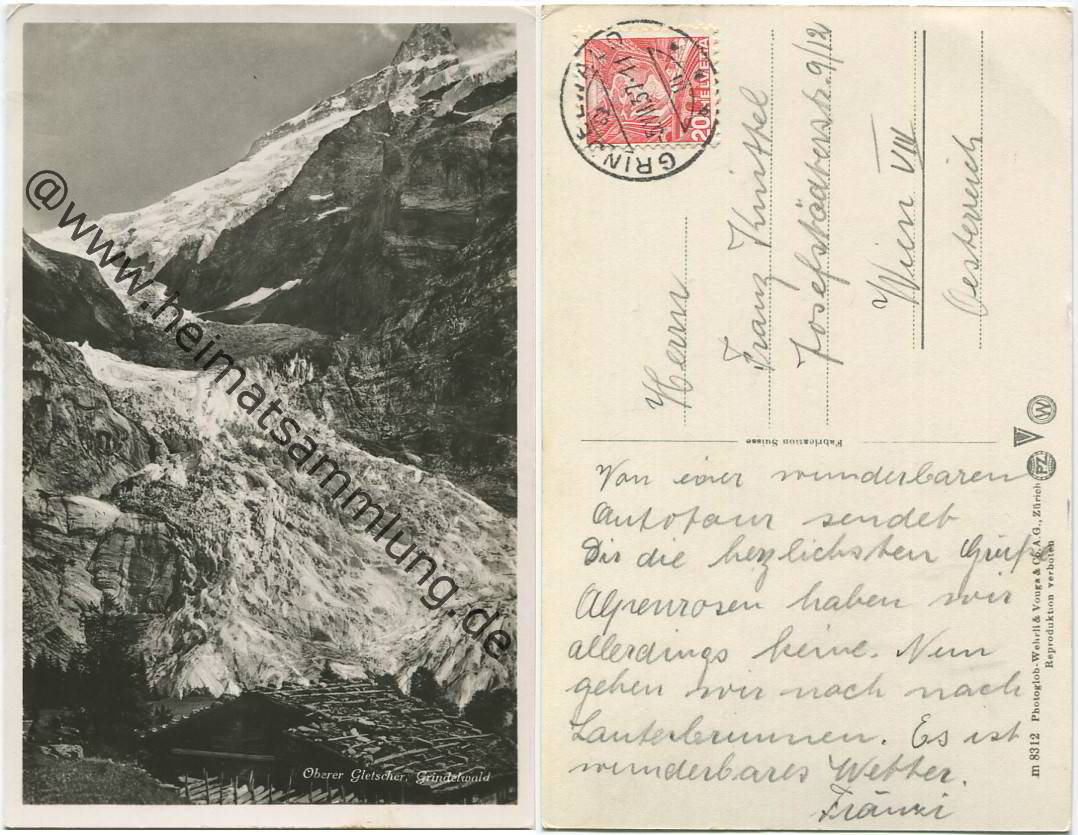 Oberer Gletscher, Grindelwald
@www.heimatsammlung.de
20 HELVETIA
GRINDELWALD
Herrn
Franz Knittel
Josefstädterstr. 9/12
Wien VIII
Oesterreich
Fabrication Suisse
W
V
PZ
Von einer wunderbaren
Autotour sendet
Dir die herzlichsten Grüße
Alpenrosen haben wir
allerdings keine. Nun
gehen wir noch nach
Lauterbrunnen. Es ist
wunderbares Wetter.
Fränzi
m 8312 Photoglob-Wehrli & Vouga & Co. A.G., Zürich
Reproduktion verboten